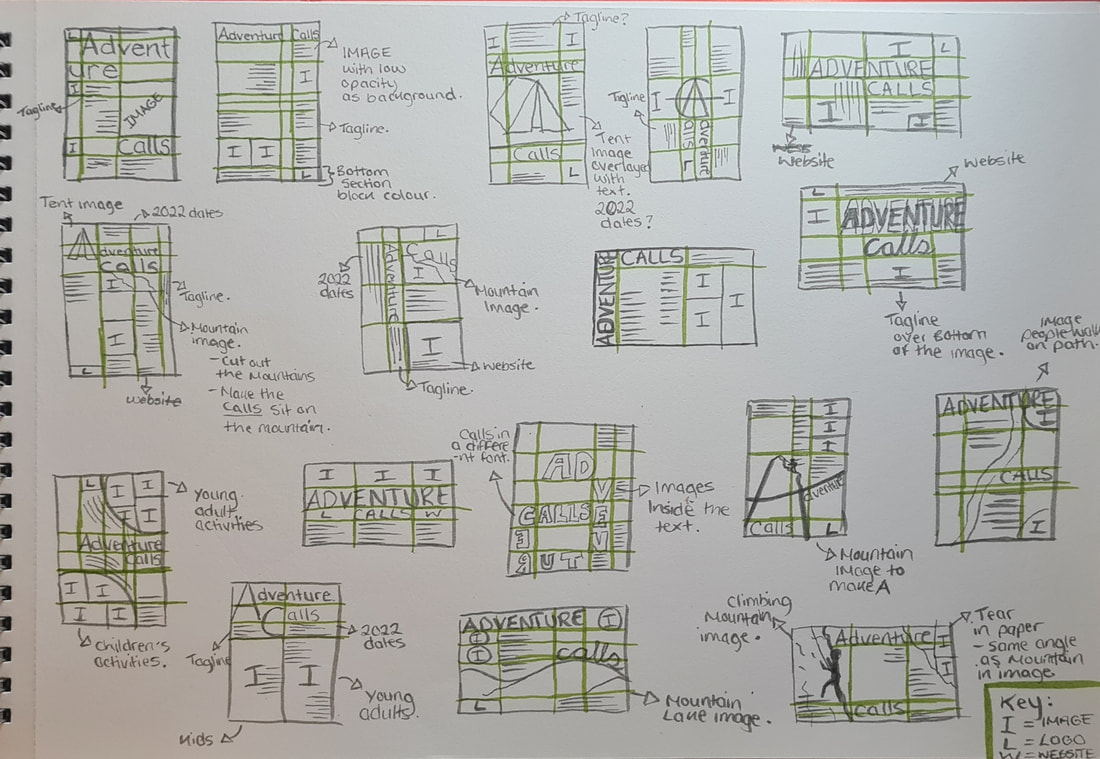 L
Advent
ure
I
Tagline
IMAGE
I
Calls
Adventure Calls
IMAGE
with low
opacity
as background.
I
Tagline.
I I
L
Bottom
section
block colour.
Tagline?
I I
Adventure
Calls
L
Tent
image
overlayed
with
text.
2022
dates?
Tagline
I A I
Calls
dventure
L
I L
ADVENTURE
CALLS
I
I
Website
Website
L
I
ADVENTURE
Calls
I
Tagline
over bottom
of the image.
Tent image
2022 dates
A
dventure
Calls
I
I
L
Tagline.
Mountain
image.
- Cut out
the mountains
- Make the
Calls sit on
the mountain.
Website
L
2022
dates
Adventure
Calls
I
I
Mountain
Image.
Website
Tagline.
ADVENTURE
CALLS
I
I
I
Image
people walk
on path.
ADVENTURE
I
CALLS
I
L
I I
I I
Adventure
Calls
I I
I I
Young
adult
activities
Children's
activities.
I I I
ADVENTURE
L CALLS W
Calls in
a differe
-nt font.
AD
V
CALLSE
Images
Inside the
text.
I
I
I
dventure
Calls
L
Mountain
image to
make A
Adventure.
Calls
Tagline
2022
dates
I I
Young
adults.
Kids
ADVENTURE I
I
I
Calls
L
Mountain
Lake image.
Climbing
Mountain
image.
Adventure
I
I
Calls
Tear
in paper
- same angle
as mountain
in image
Key:
I = IMAGE
L = LOGO
W = WEBSITE